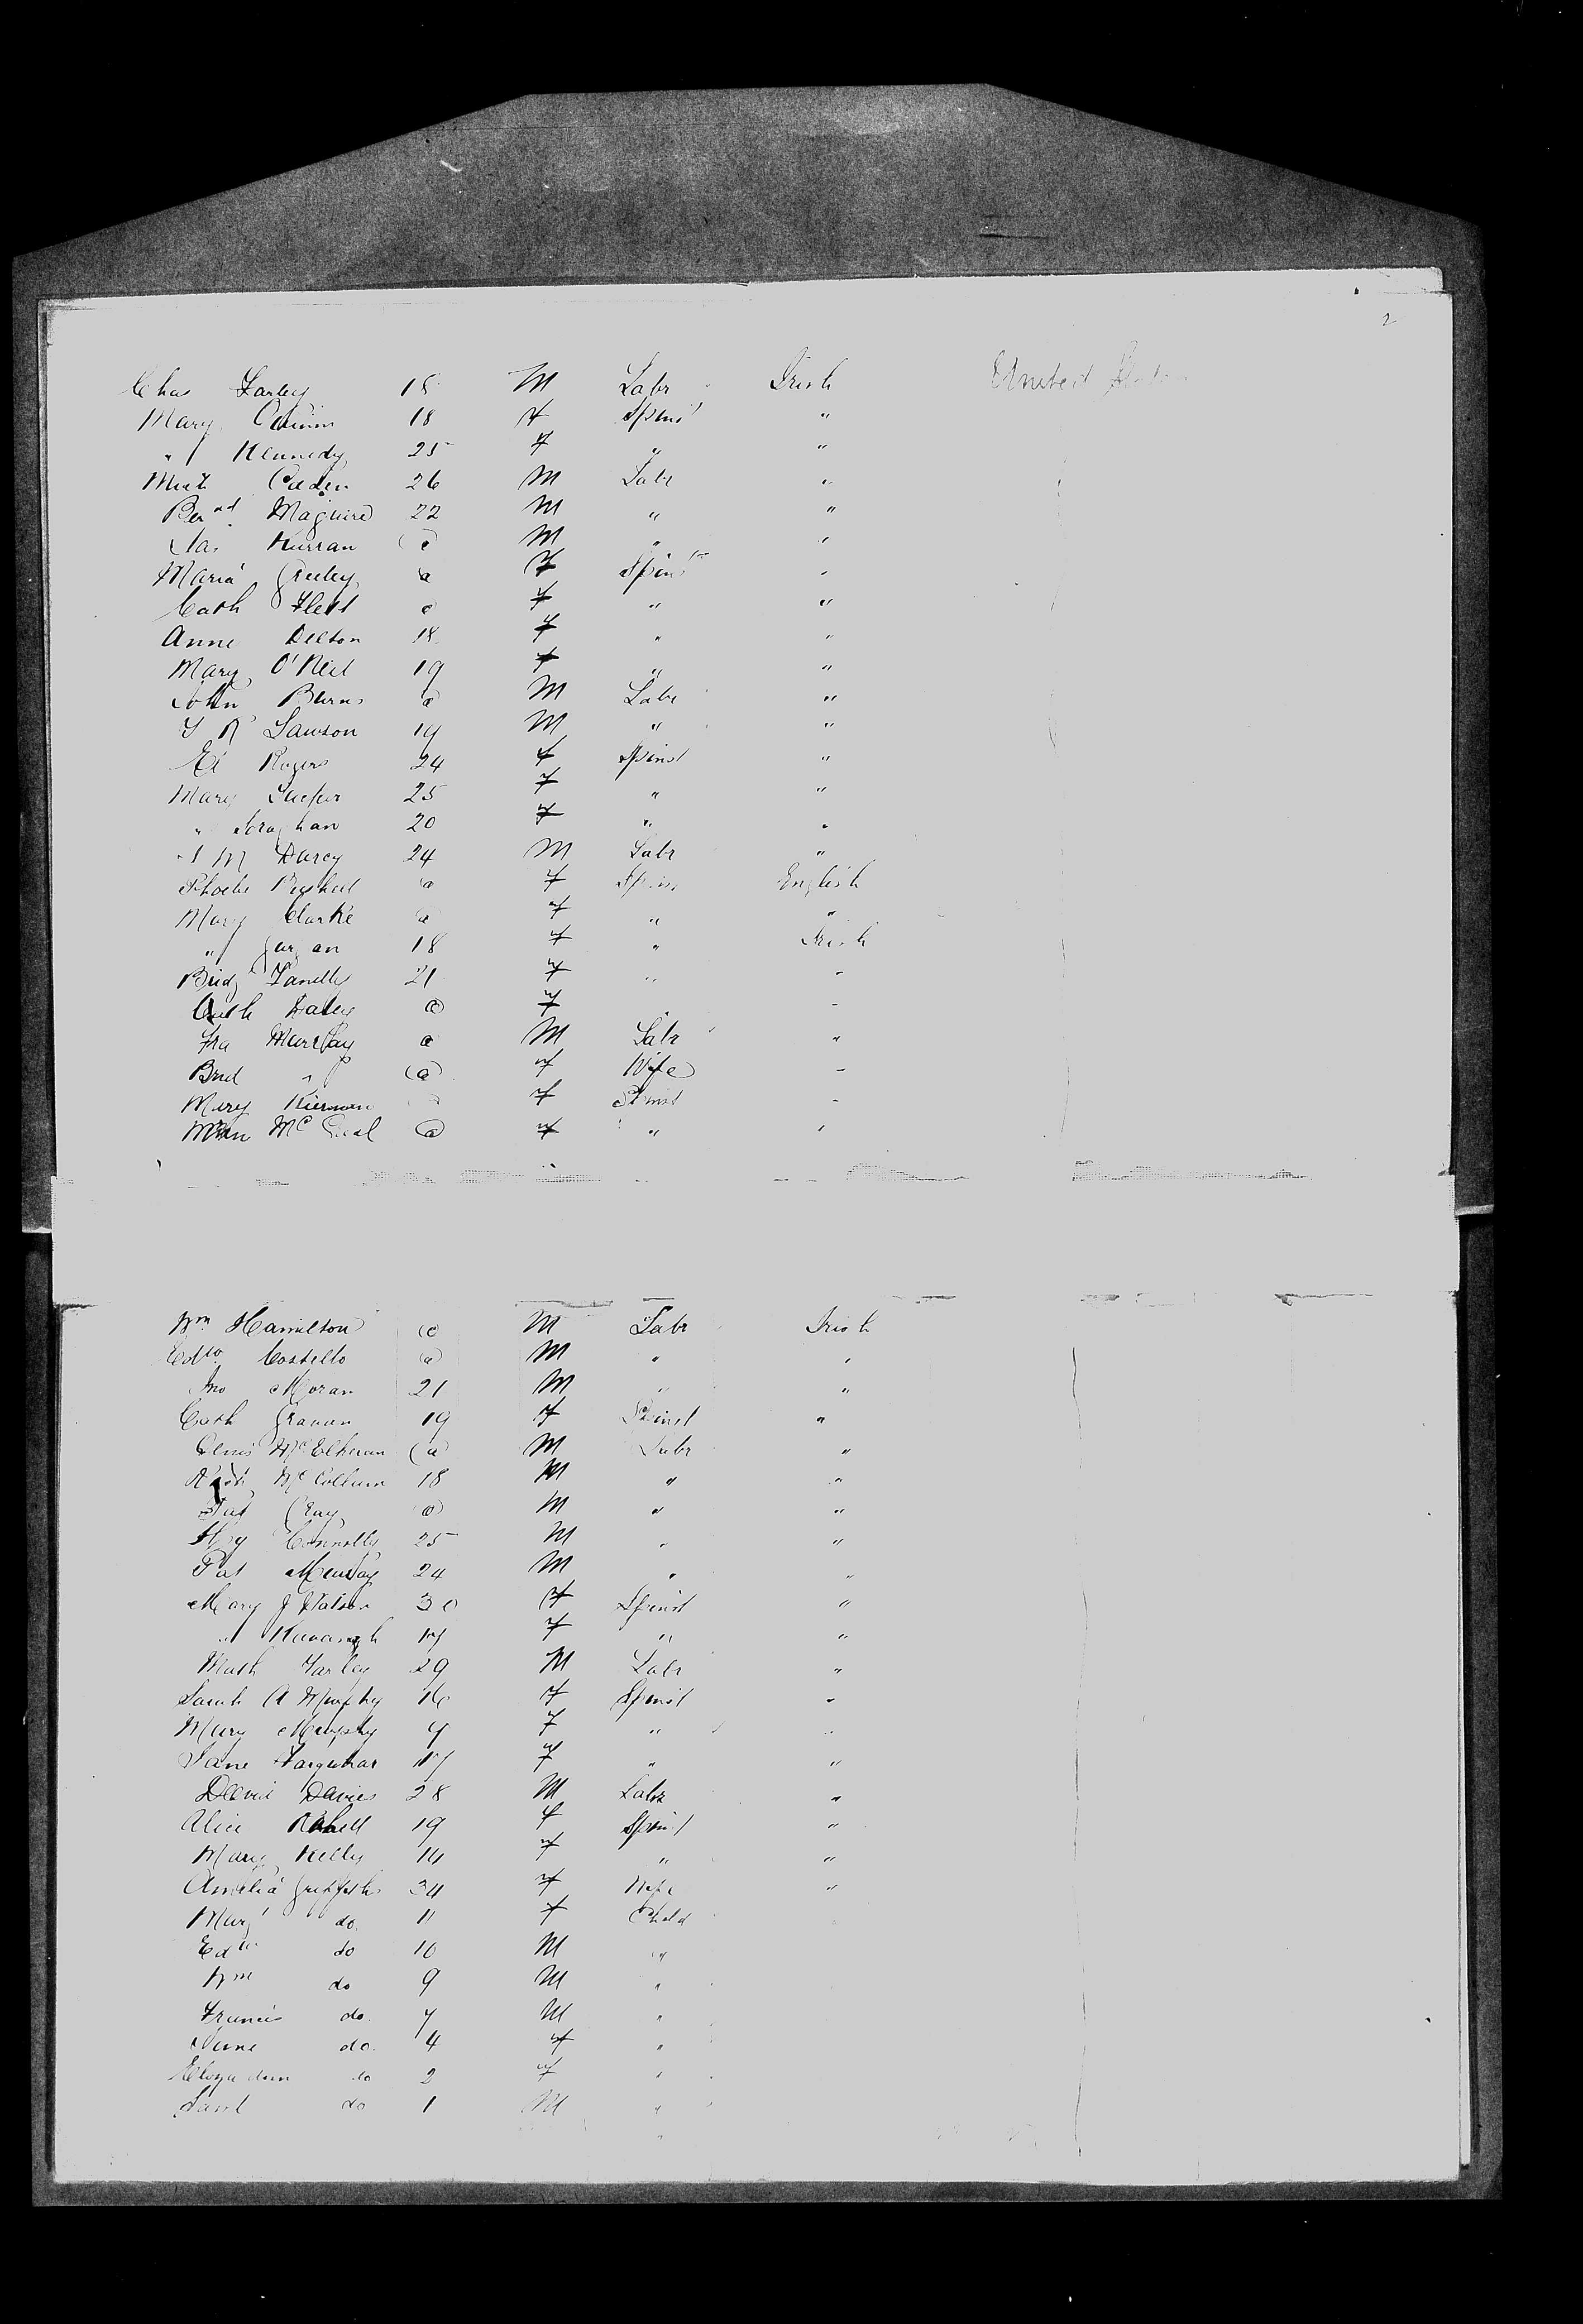 2
Chas Farley 18 M Labr Irish United States
Mary Quinn 18 f Spinst "
" Kennedy 25 f " "
Mich Caden 26 M Labr "
Bernd Maguire 22 M " "
Jas Kurran @ M " "
Maria Greeley a f Spinst "
Cath Flett a f " "
Anne Delton 18 f " "
Mary O'Neil 19 f " "
John Burns a M Labr "
Lawson 19 M " "
Rogers 24 f Spinst "
Mary 25 f " "
" 20 f " "
Darcy 24 M Labr "
Phoebe a f Spins English
Mary Clarke a f " "
" 18 f " Irish
Bridg 21 f " "
Cath Daley @ f "
Fra Murray a M Labr "
Brid " @ f Wife "
Mary Kiernan f Spinst "
McCaul @ f " "
Wm Hamilton @ M Labr Irish
Edwd Costello @ M " "
Jno Moran 21 M " "
Cath 19 f Spinst "
M " "
McCollum 18 M " "
Pat Cray @ M " "
Hy Connolly 25 M " "
Pat Murray 24 M " "
Mary J Watson 30 f Spinst "
" Kavanagh 17 f " "
Math Farley 29 M Labr "
Sarah A Murphy 16 f Spinst "
Mary Murphy 9 f " "
Jane Farquhar 17 f " "
David Davies 28 M Labr "
Alice 19 f Spinst "
Mary Kelly 14 f " "
Amelia Griffiths 34 f Wife "
Mary do 11 f Child
Edw do 10 M "
Wm do 9 M "
Francis do. 7 M "
Jane do. 4 f "
do 2 f "
Saml do 1 M "